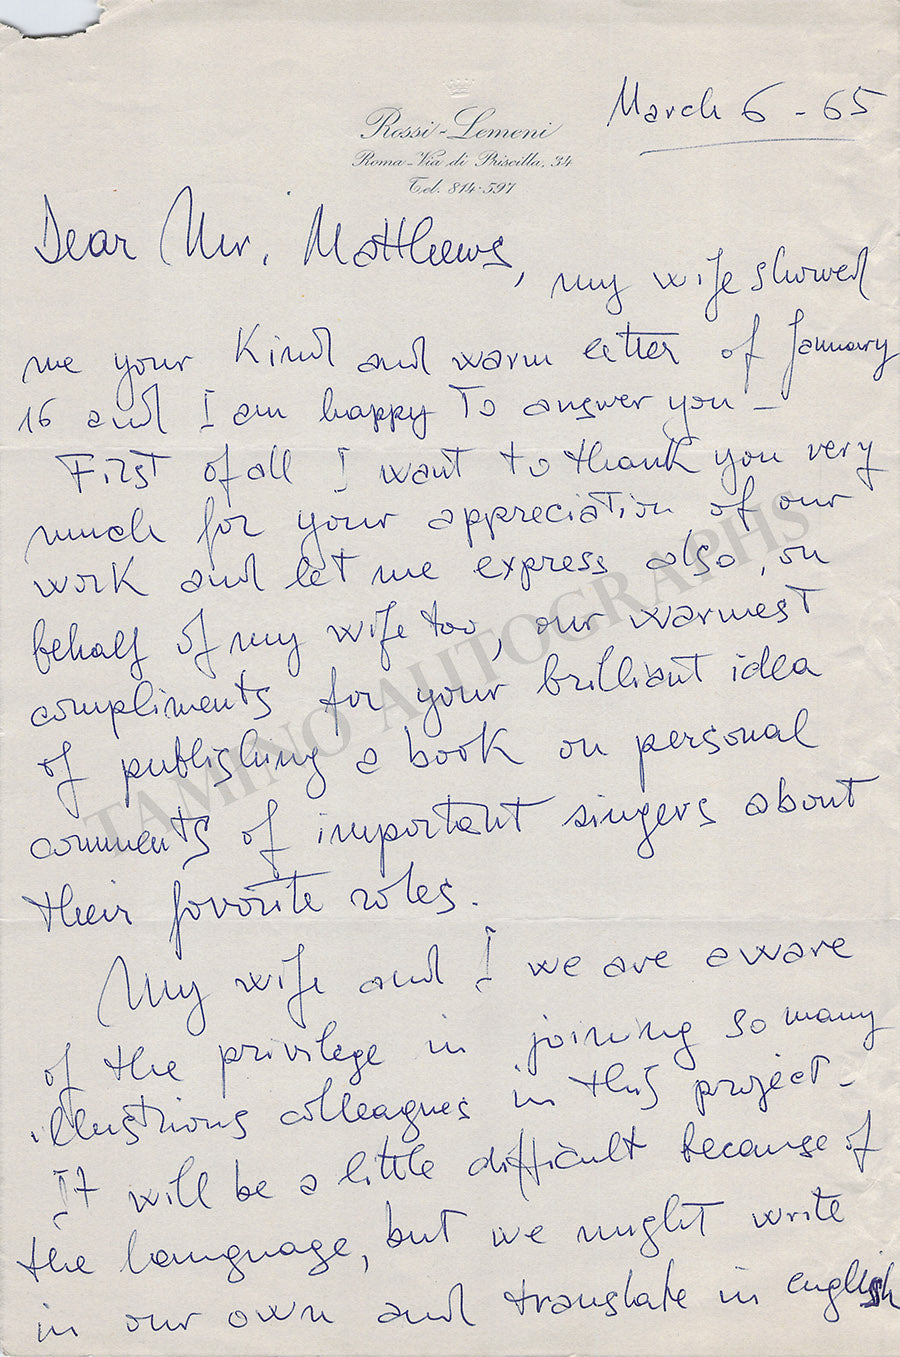 March 6 - 65
Rossi-Lemeni
Roma - Via di Priscilla, 34
Tel. 814-597
Dear Mr. Matthews,
my wife showed
me your kind and warm letter of January
16 and I am happy to answer you -
First of all I want to thank you very
much for your appreciation of our
work and let me express also, on
behalf of my wife too, our warmest
compliments for your brilliant idea
of publishing a book on personal
comments of important singers about
their favorite roles.
My wife and I we are aware
of the privilege in joining so many
illustrious colleagues in this project -
It will be a little difficult because of
the language, but we might write
in our own and translate in english
TAMINO AUTOGRAPHS